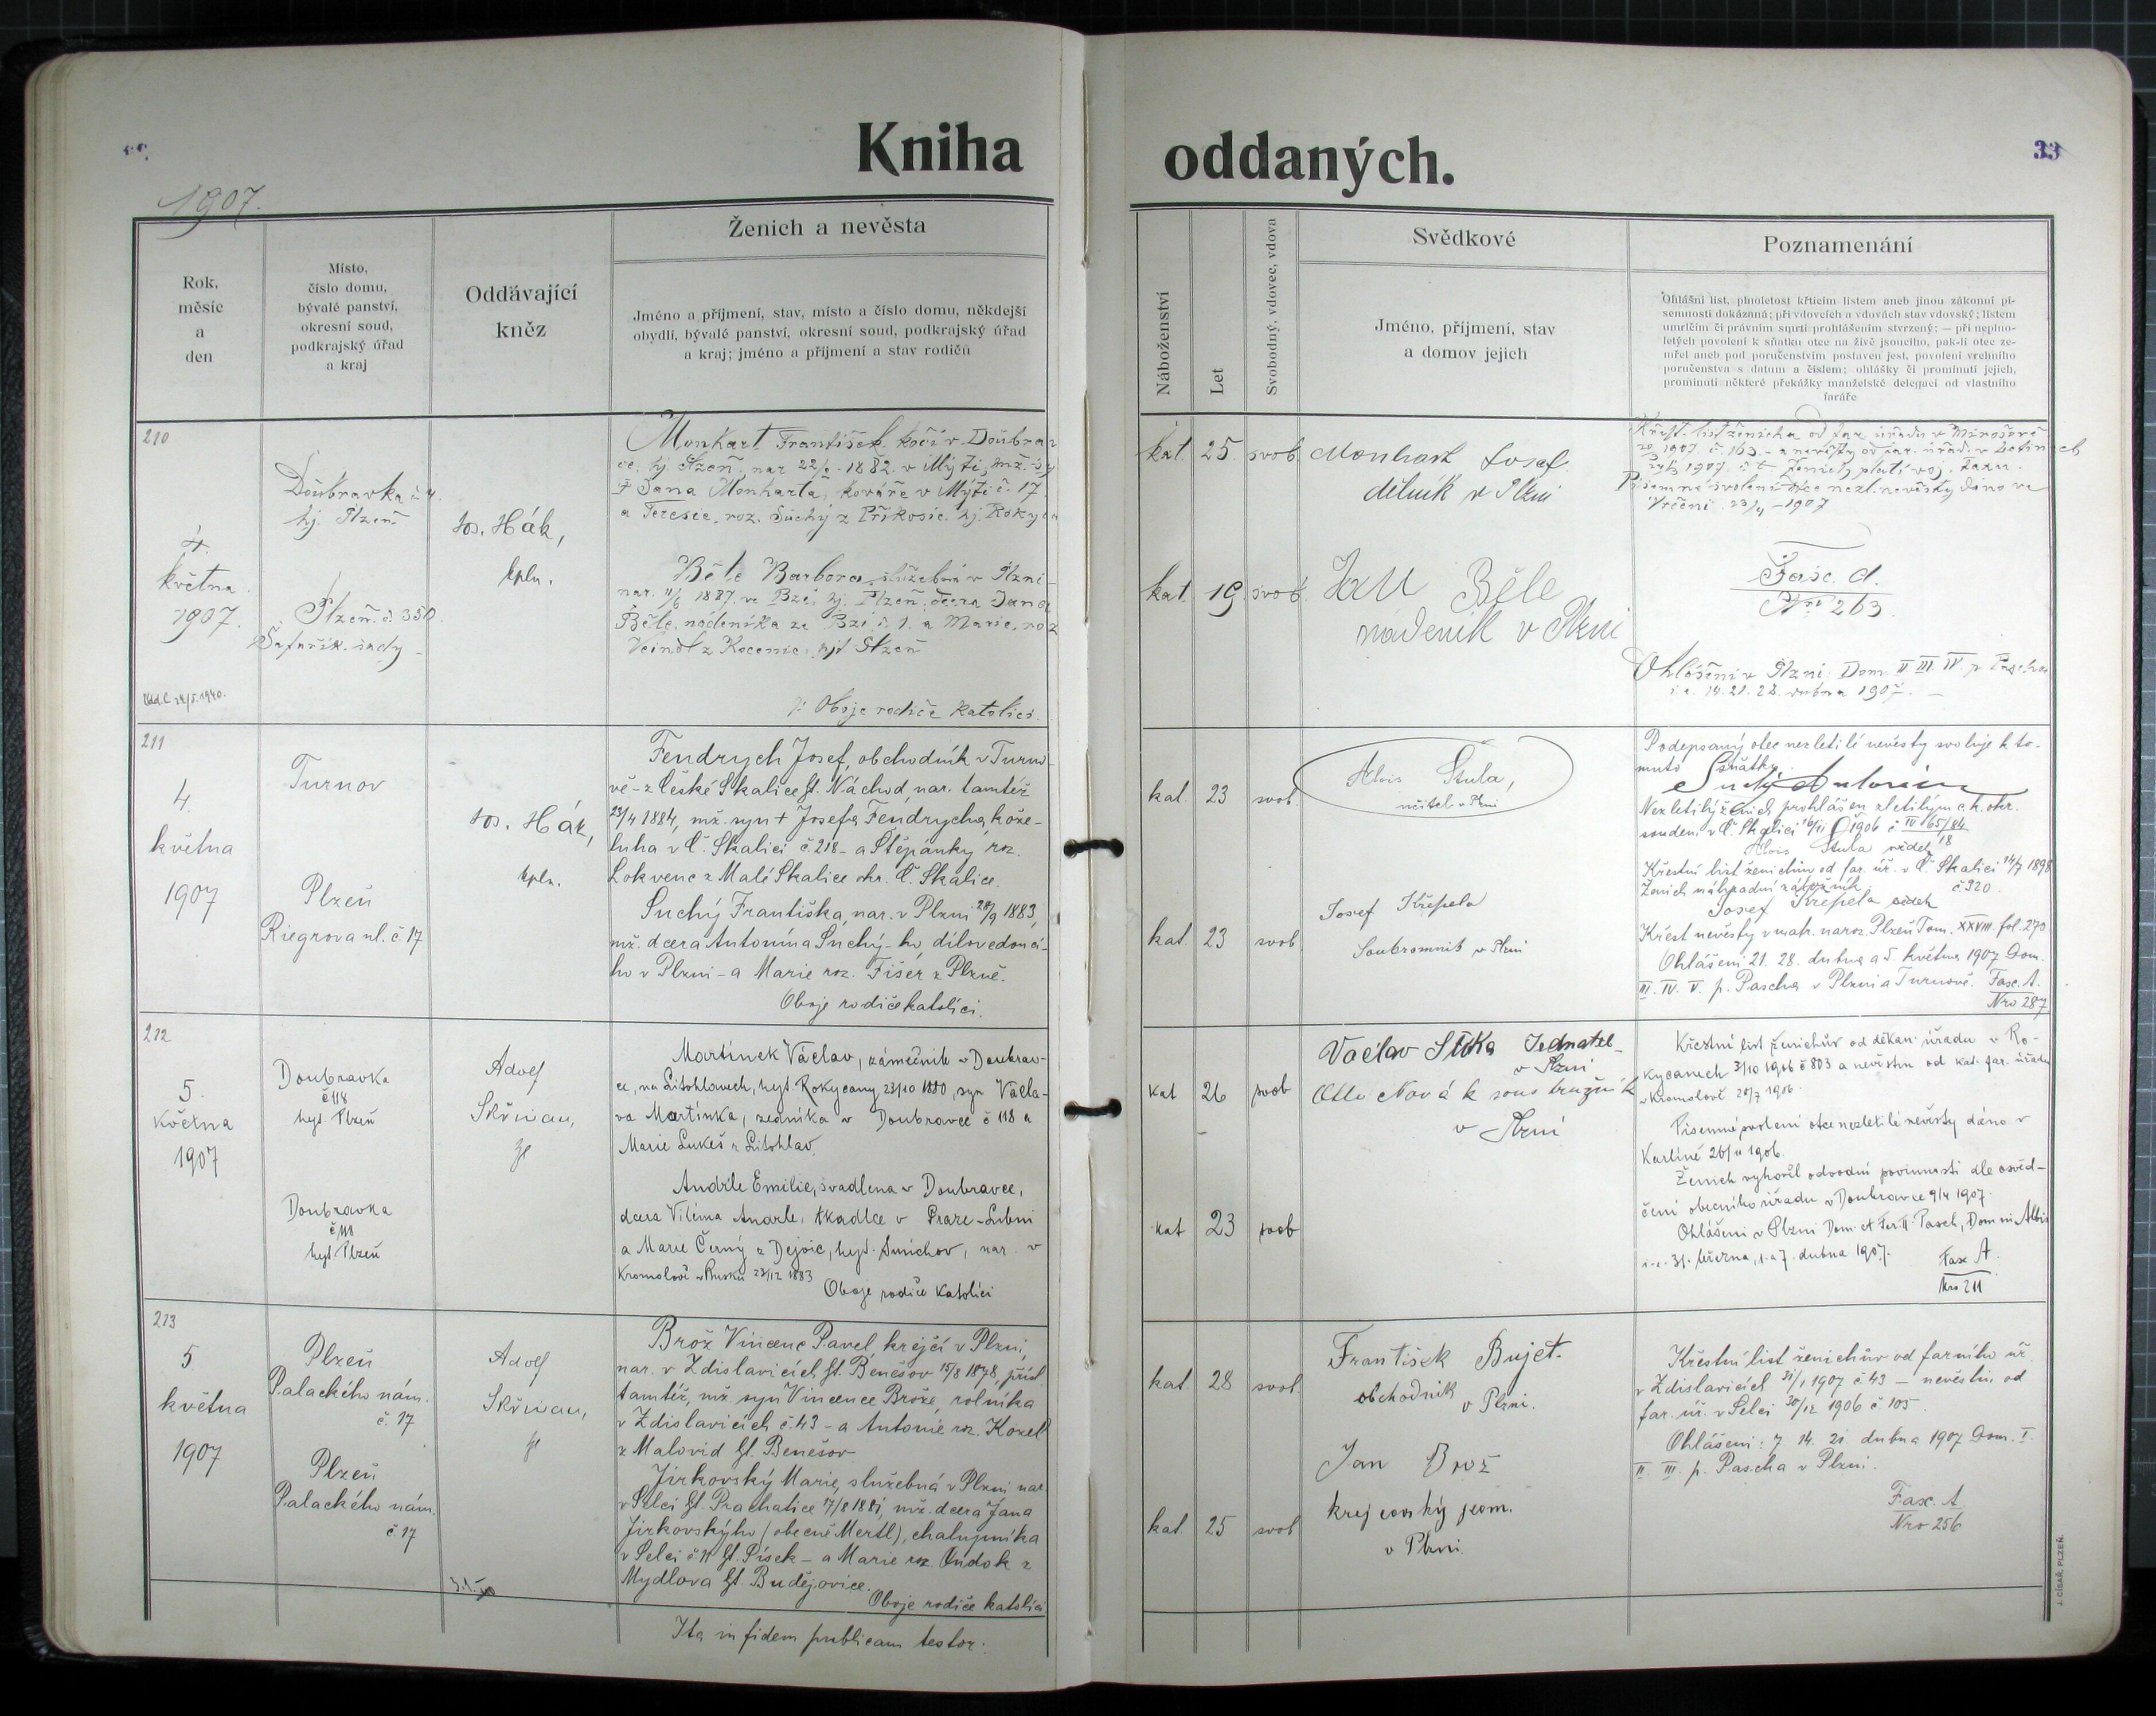 Kniha
oddaných.
33
1907.
Rok,
měsíc
a
den
Místo,
číslo domu,
bývalé panství,
okresní soud,
podkrajský úřad
a kraj
Oddávající
kněz
Ženich a nevěsta
Jméno a příjmení, stav, místo a číslo domu, někdejší
obydlí, bývalé panství, okresní soud, podkrajský úřad
a kraj; jméno a příjmení a stav rodičů
Náboženství
Let
Svobodný, vdovec, vdova
Svědkové
Jméno, příjmení, stav
a domov jejich
Poznamenání
Ohlášní list, plnoletost křticím listem aneb jinou zákonní pí-
semností dokázaná; při vdovcích a vdovách stav vdovský; listem
umrlčím či právním smrti prohlášením stvrzený; — při neplno-
letých povolení k sňatku otce na živě jsoucího, pak-li otec ze-
mřel aneb pod poručenstvím postaven jest, povolení vrchního
poručenstva s datum a číslem; ohlášky či prominutí jejich,
prominutí některé překážky manželské delegací od vlastního
faráře
210
4.
května
1907.
Doubravka č. 4.
hj. Plzeň
Plzeň č. 350.
Šafařík. sady
Jos. Hák,
kpln.
Monhart František, kočí v Doubrav
ce, hj. Plzeň, nar. 22/ 1882 v Mýtě, mž. sy
Jana Monharta, kováře v Mýtě č. 17
a Terezie, roz. Suchý z Příkosic, hj. Rokyc
Běle Barbora, služebná v Plzni
nar. 11/6 1887 ve Bzí, hj. Plzeň, dcera Jana
Běle, nádeníka ze Bzí č. 1. a Marie, roz
z Kocenic, hjt Plzeň
Oboje rodiče katolíci.
kat. 25. svob.
Monhart Josef.
dělník v Plzni
kat. 19. svob.
Jan Běle
nádeník v Plzni
Křest. list ženicha od far. úřadu v Mirošově
1907 č. 163. - a nevěsty od far. úřad. v
1907. ženich platí voj. taxu.
Písemné svolení otce nezl. nevěsty dáno ve
Vrčeni 23/4 - 1907
Fasc. A.
Nro 263.
Ohlášeni v Plzni Dom. II III IV. p. Pascha
i. e. 14. 21. 28. dubna 1907. —
211
4.
května
1907
Turnov
Plzeň
Riegrova ul. č. 17
Jos. Hák,
kpln.
Fendrych Josef, obchodník v Turno-
vě - z České Skalice hjt. Náchod, nar. tamtéž
23/4 1884, mž. syn † Josefa Fendrycha, kože-
luha v Č. Skalici č. 218 - a Štěpánky, roz.
Lokvenc z Malé Skalice okr. Č. Skalice.
Suchý Františka, nar. v Plzni 28/9 1883,
mž. dcera Antonína Suchý-ho, dílovedoucí-
ho v Plzni - a Marie roz. Fišer z Plzně.
Oboje rodiče katolíci.
kat. 23 svob.
Alois Stula,
učitel v Plzni
kat. 23 svob.
Josef Křepela
Soukromník v Plzni
Podepsaný otec nezletilé nevěsty svoluje k to-
muto sňatku.
Suchý Antonín
Nezletilý ženich prohlášen zletilým c. k. okr.
soudem v Č. Skalici 16/11 1906 č. IV 65/84
Alois Stula svědek 18
Křestní list ženichův od far. úř. v Č. Skalici 14/7 1898
Ženich náhradní záložník č. 320.
Josef Křepela svědek
Křest nevěsty v matr. naroz. Plzeň Tom. XXVIII. fol. 270
Ohlášeni 21. 28. dubna a 5. května 1907 Dom.
III. IV. V. p. Pascha v Plzni a Turnově. Fasc. A.
Nro 287
212
5.
Května
1907
Doubravka
č 118
hejt. Plzeň
Doubravka
č 118
hejt. Plzeň
Adolf
Skřivan,
Martínek Václav, zámečník v Doubrav-
ce, na Litohlavech, hejt. Rokycany 23/10 1880, syn Václa-
va Martínka, zedníka v Doubravce č 118 a
Marie Lukeš z Litohlav.
Andrle Emilie, švadlena v Doubravce,
dcera Viléma Andrle, tkadlce v Praze-Libni
a Marie Černý z Dejvic, hejt. Smíchov, nar. v
Kromolově v Rusku 23/12 1883
Oboje rodiče katolíci
kat 26 svob
Václav Jednatel
v Plzni
Otto Novák soustružník
v Plzni
kat 23 svob
Křestní list ženichův od děkan. úřadu v Ro-
kycanech 3/10 1906 č 803 a nevěstin od kat. far. úřadu
v Kromolově 28/7 1906.
Písemné svolení otce nezletilé nevěsty dáno v
Karlíně 26/11 1906.
Ženich vyhověl odvodní povinnosti dle osvěd-
čení obecního úřadu v Doubravce 9/4 1907.
Ohlášeni v Plzni Dom. et Fer. II. Pasch, Dom in Albis
i. e. 31. března, 1. a 7. dubna 1907.
Fasc A.
Nro 211
213
5.
května
1907
Plzeň
Palackého nám.
č. 17
Plzeň
Palackého nám.
č. 17
Adolf
Skřivan,
Brož Vincenc Pavel, krejčí v Plzni,
nar. v Zdislavicích hjt. Benešov 15/8 1878, přísl.
tamtéž, mž. syn Vincence Brože, rolníka
v Zdislavicích č. 43 - a Antonie roz. Kozel
z Malovid hjt. Benešov
Jirkovský Marie, služebná v Plzni nar.
v Selci hjt. Prachatice 17/8 1881, mž. dcera Jana
Jirkovskýho (obecně Mertl), chalupníka
v Selci č. 11 hjt. Písek - a Marie roz. Ondok z
Mydlova hjt. Budějovice.
Oboje rodiče katolíci
kat. 28 svob.
František Bujet.
obchodník v Plzni.
kat. 25 svob.
Jan Brož
krejčovský pom.
v Plzni.
Křestní list ženichův od farního úř.
v Zdislavicích 31/1 1907 č. 43 — nevěstin od
far. úř. v Selci 30/12 1906 č 105.
Ohlášeni: 7. 14. 21. dubna 1907 Dom. I.
II. III. p. Pascha v Plzni.
Fasc. A.
Nro 256
Ita in fidem publicam testor:
J. CÍSAŘ, PLZEŇ.